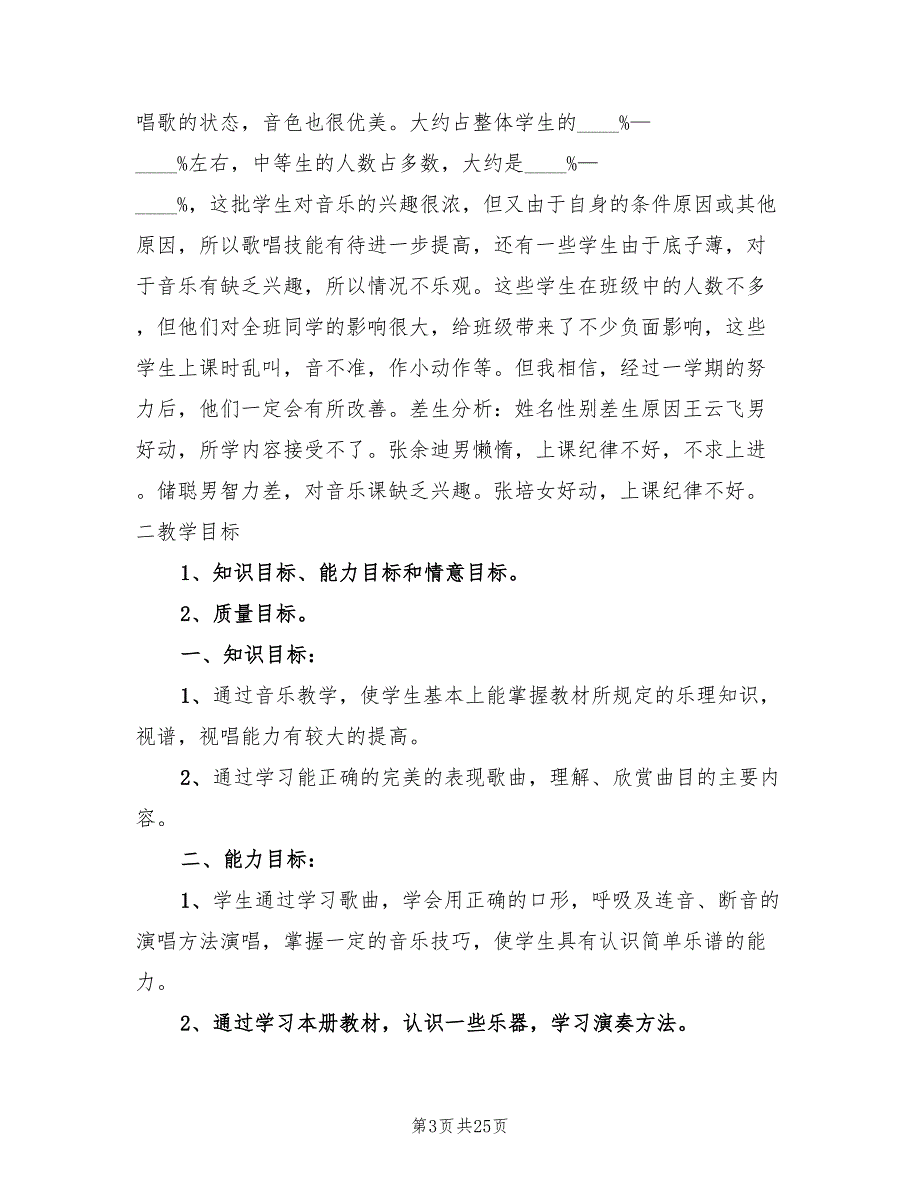 唱歌的状态，音色也很优美。大约占整体学生的____%—
____%左右，中等生的人数占多数，大约是____%—
____%，这批学生对音乐的兴趣很浓，但又由于自身的条件原因或其他
原因，所以歌唱技能有待进一步提高，还有一些学生由于底子薄，对
于音乐有缺乏兴趣，所以情况不乐观。这些学生在班级中的人数不多
，但他们对全班同学的影响很大，给班级带来了不少负面影响，这些
学生上课时乱叫，音不准，作小动作等。但我相信，经过一学期的努
力后，他们一定会有所改善。差生分析：姓名性别差生原因王云飞男
好动，所学内容接受不了。张余迪男懒惰，上课纪律不好，不求上进
。储聪男智力差，对音乐课缺乏兴趣。张培女好动，上课纪律不好。
二教学目标
1、知识目标、能力目标和情意目标。
2、质量目标。
一、知识目标：
1、通过音乐教学，使学生基本上能掌握教材所规定的乐理知识，
视谱，视唱能力有较大的提高。
2、通过学习能正确的完美的表现歌曲，理解、欣赏曲目的主要内
容。
二、能力目标：
1、学生通过学习歌曲，学会用正确的口形，呼吸及连音、断音的
演唱方法演唱，掌握一定的音乐技巧，使学生具有认识简单乐谱的能
力。
2、通过学习本册教材，认识一些乐器，学习演奏方法。
第3页共25页